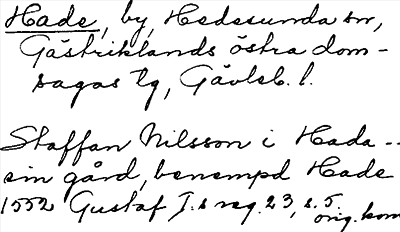 Hade, by, Hedesunda sn,
Gästriklands östra dom-
sagas tg, Gävleb. l.
Staffan Nilsson i Hada --
sin gård, benempd Hade
1552 Gustaf I.s reg. 23, s. 5
orig. kom